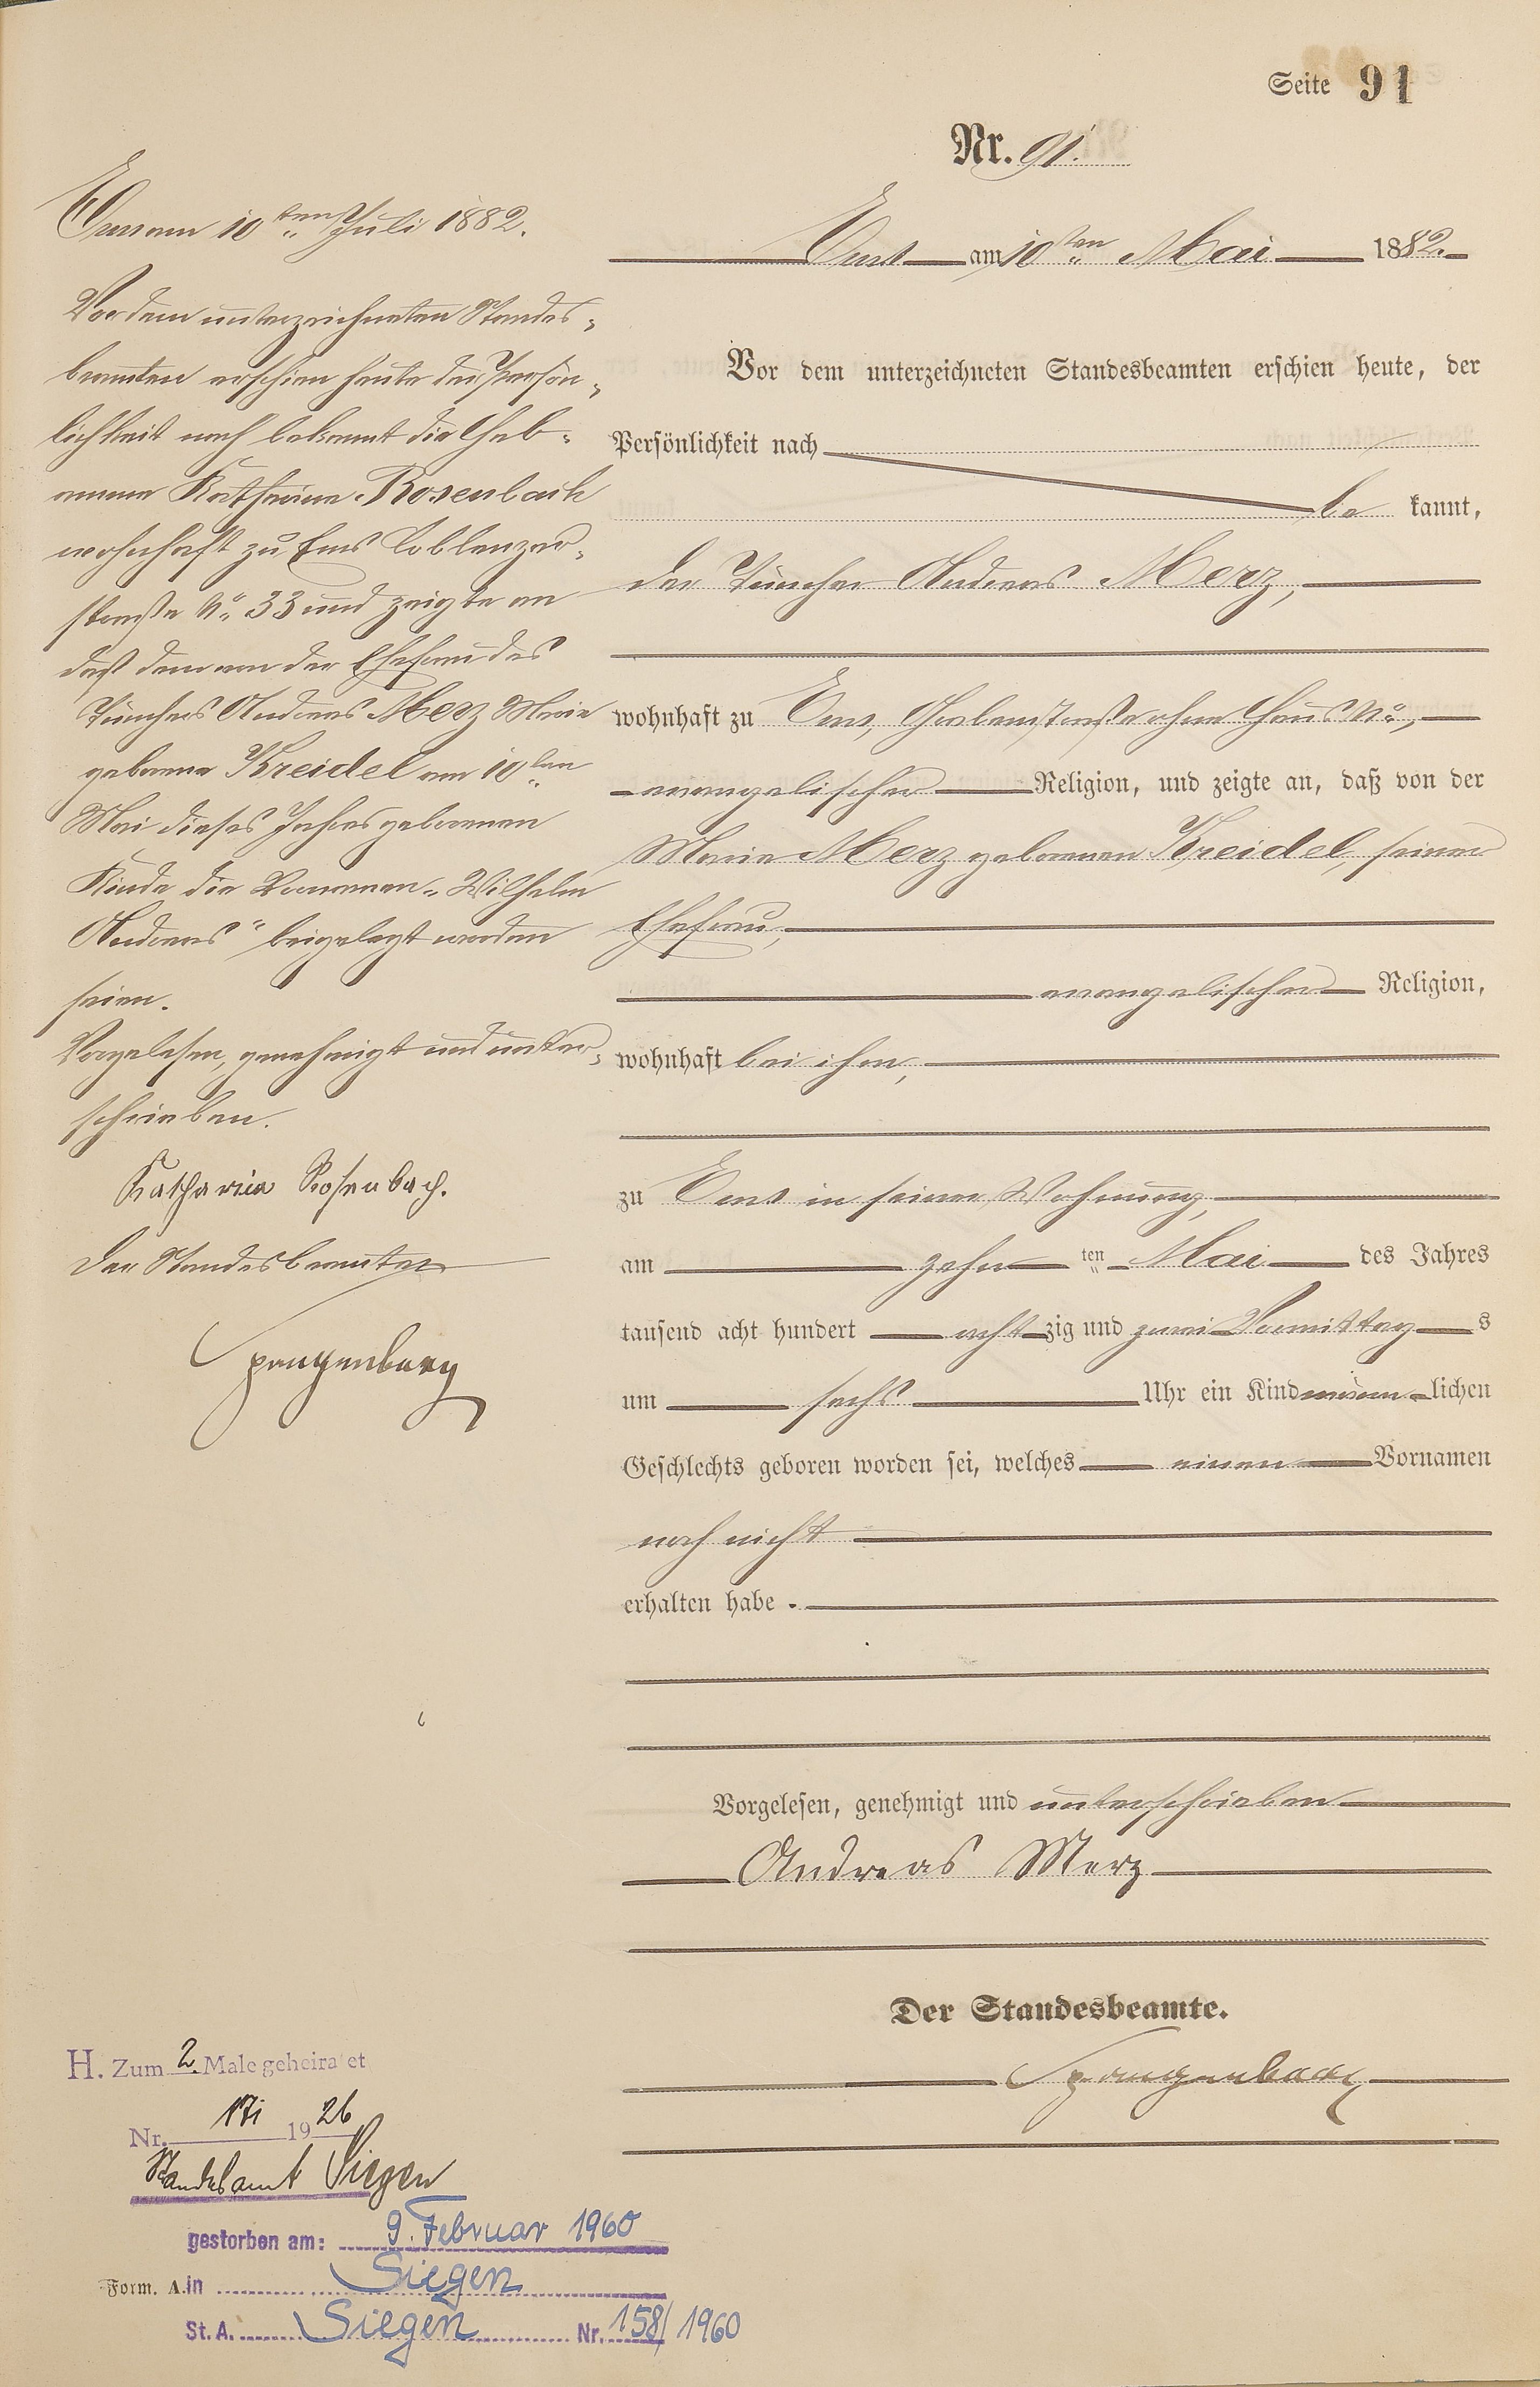 Seite 91
Nr. 91.
Ems am 10ten Mai 1882.
Vor dem unterzeichneten Standesbeamten erschien heute, der
Persönlichkeit nach
be kannt,
der Tüncher Andreas Merz,
wohnhaft zu Ems, straße ohne Haus No,
evangelischer Religion, und zeigte an, daß von der
Marie Merz geborenen Kreidel, seiner
Ehefrau,
evangelischer Religion,
wohnhaft bei ihm,
zu Ems in seiner Wohnung,
am zehn ten Mai des Jahres
tausend acht hundert acht zig und zwei Vormittag s
um sechs Uhr ein Kind männ lichen
Geschlechts geboren worden sei, welches einen Vornamen
noch nicht
erhalten habe.
Vorgelesen, genehmigt und unterschrieben
Andreas Merz
Der Standesbeamte.
Spangenberg
Ems am 10ten Juli 1882.
Vor dem unterzeichneten Standes-
beamten erschien heute der Persön-
lichkeit nach bekannt die Heb-
amme Katharina Rosenbach
wohnhaft zu Ems Coblenzer-
straße No 33 und zeigte an
daß dem von der Ehefrau des
Tünchers Andreas Merz Marie
geborene Kreidel am 10ten
Mai dieses Jahres geborenen
Kinde die Vornamen „Wilhelm
Andreas“ beigelegt worden
seien.
Vorgelesen, genehmigt und unter-
schrieben.
Katharina Rosenbach.
Der Standesbeamte
Spangenberg
H. Zum 2. Male geheiratet
Nr. 1926
Standesamt Siegen
gestorben am: 9. Februar 1960
Form. A. in Siegen
St. A. Siegen Nr. 158/1960